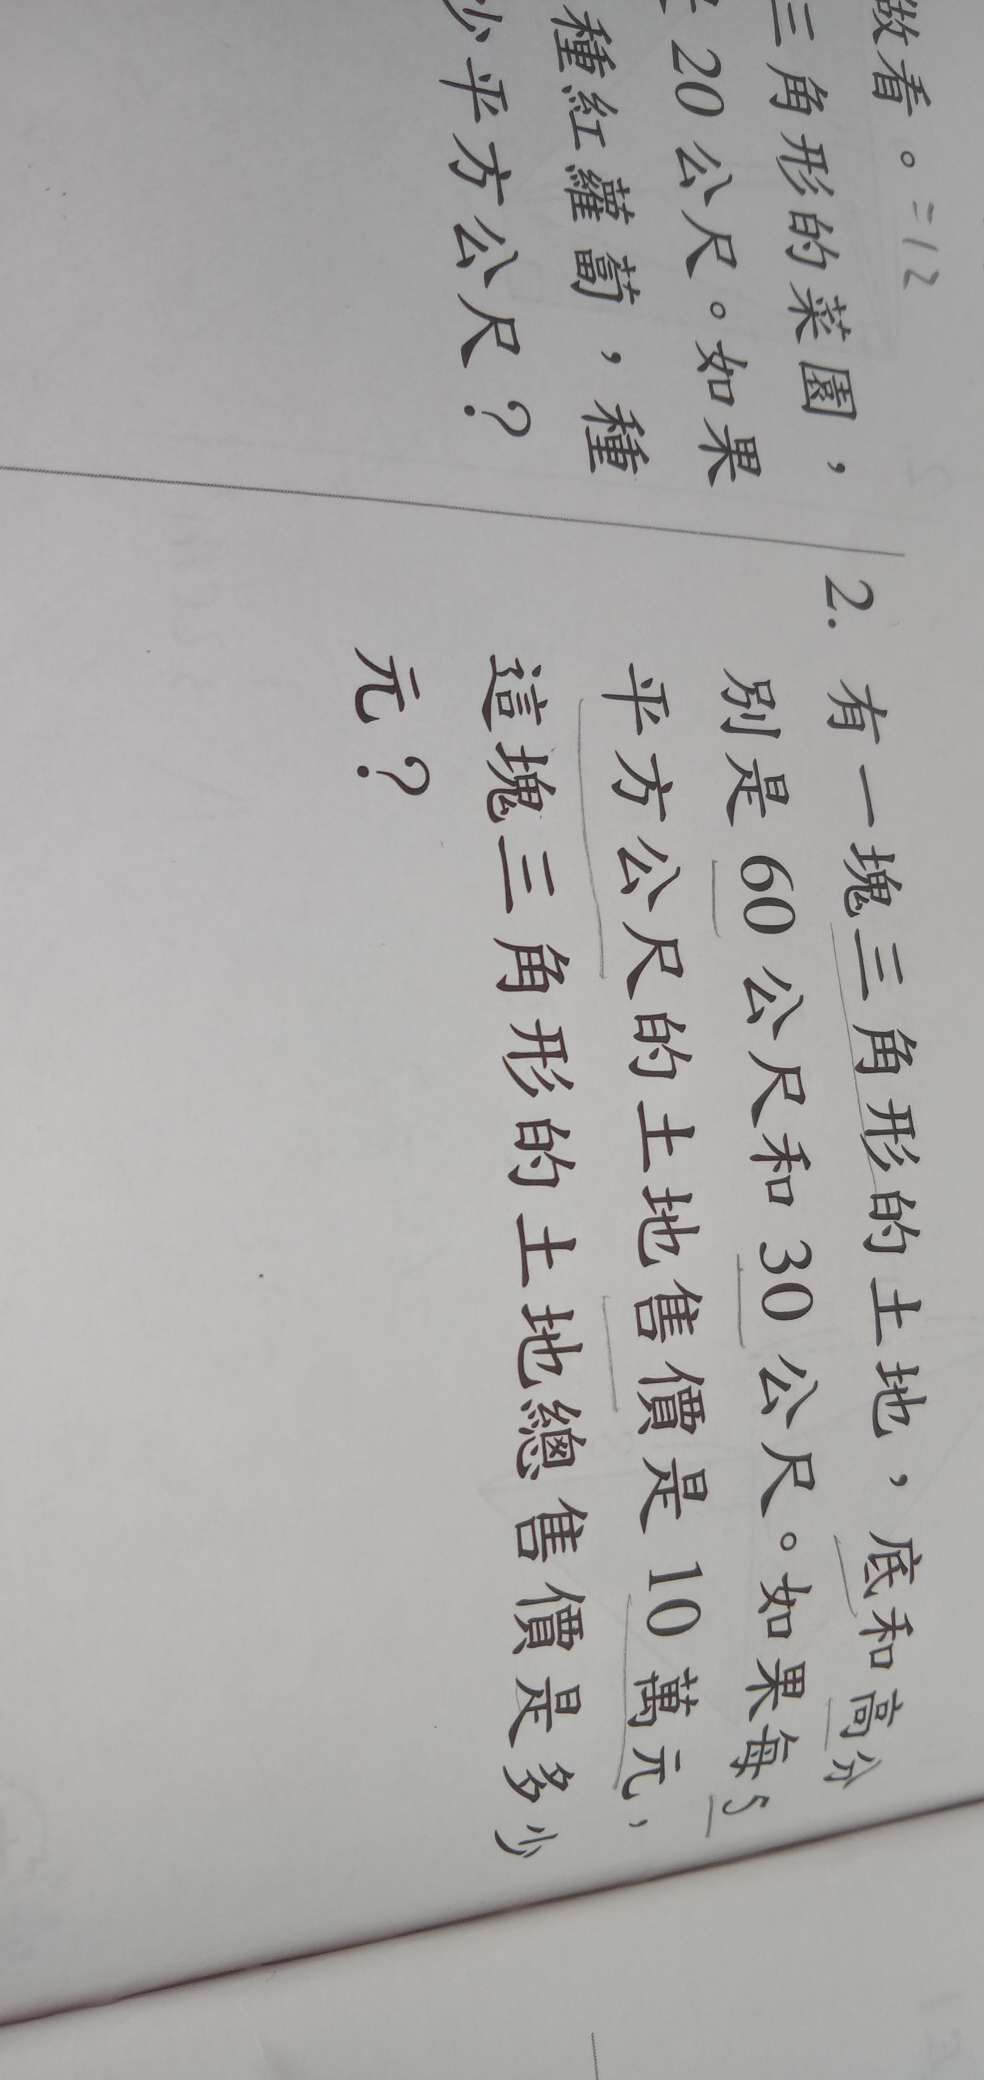 做看。=12
三角形的菜園，
20公尺。如果
種紅蘿蔔，種
少平方公尺？
2. 有一塊三角形的土地，底和高分
別是 60 公尺和 30 公尺。如果每 5
平方公尺的土地售價是 10 萬元，
這塊三角形的土地總售價是多少
元？